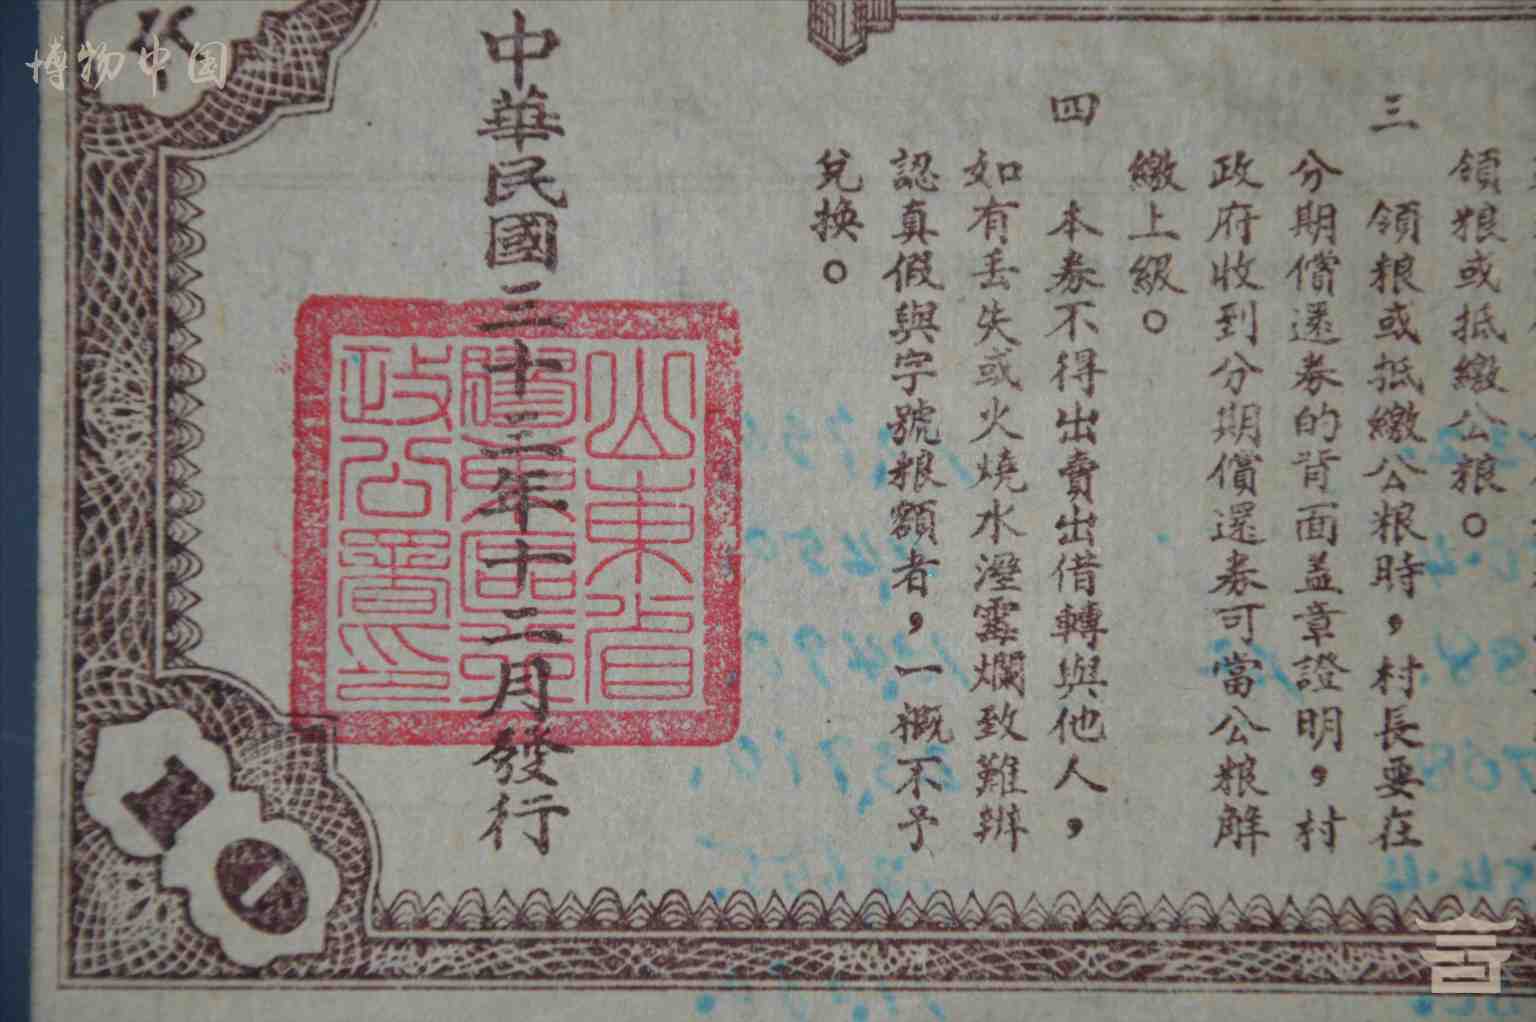 領粮或抵繳公粮。
三 領粮或抵繳公粮時，村長要在
分期償還券的背面盖章證明，村
政府收到分期償還券可當公粮解
繳上級。
四 本券不得出賣出借轉與他人，
如有丢失或火燒水溼霉爛致難辦
認真假與字號粮額者，一概不予
兌換。
中華民國三十三年十二月發行
山東省
政公署印
10
博物中国